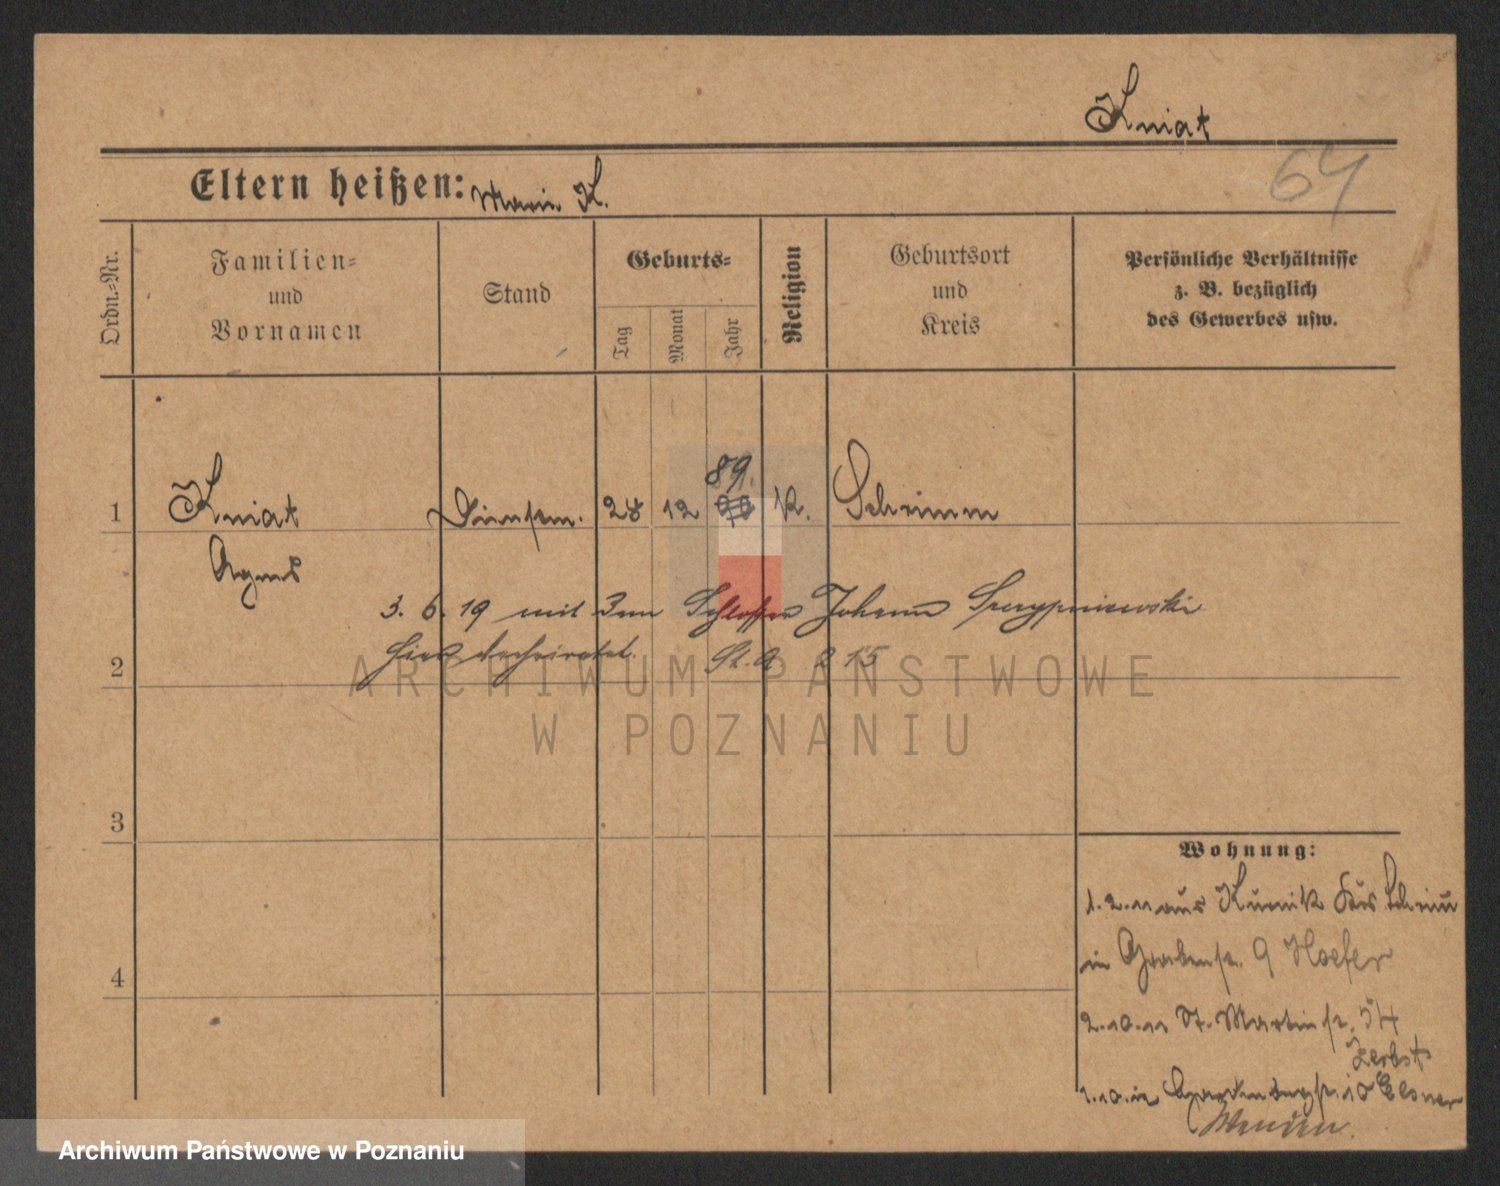 Kniat
64
Eltern heißen: Marie K.
Ordn.-Nr.
Familien-
und
Vornamen
Stand
Geburts-
Tag
Monat
Jahr
Religion
Geburtsort
und
Kreis
Persönliche Verhältnisse
z. B. bezüglich
des Gewerbes usw.
89.
1 Kniat Dienstm. 28 12 K. Schrimm
Agnes
3. 6. 19 mit dem Schlosser Johann Szczypniewski
hier verheiratet. St. A 2 15
2
ARCHIWUM PAŃSTWOWE
W POZNANIU
3
Wohnung:
1.2.11 aus Kurnik Krs Schrimm
in Grabenstr. 9 Hoefer
4
2.10.11 St. Martinstr. 54
Zerbst
1.10.12 10 Elsner
Wenden
Archiwum Państwowe w Poznaniu